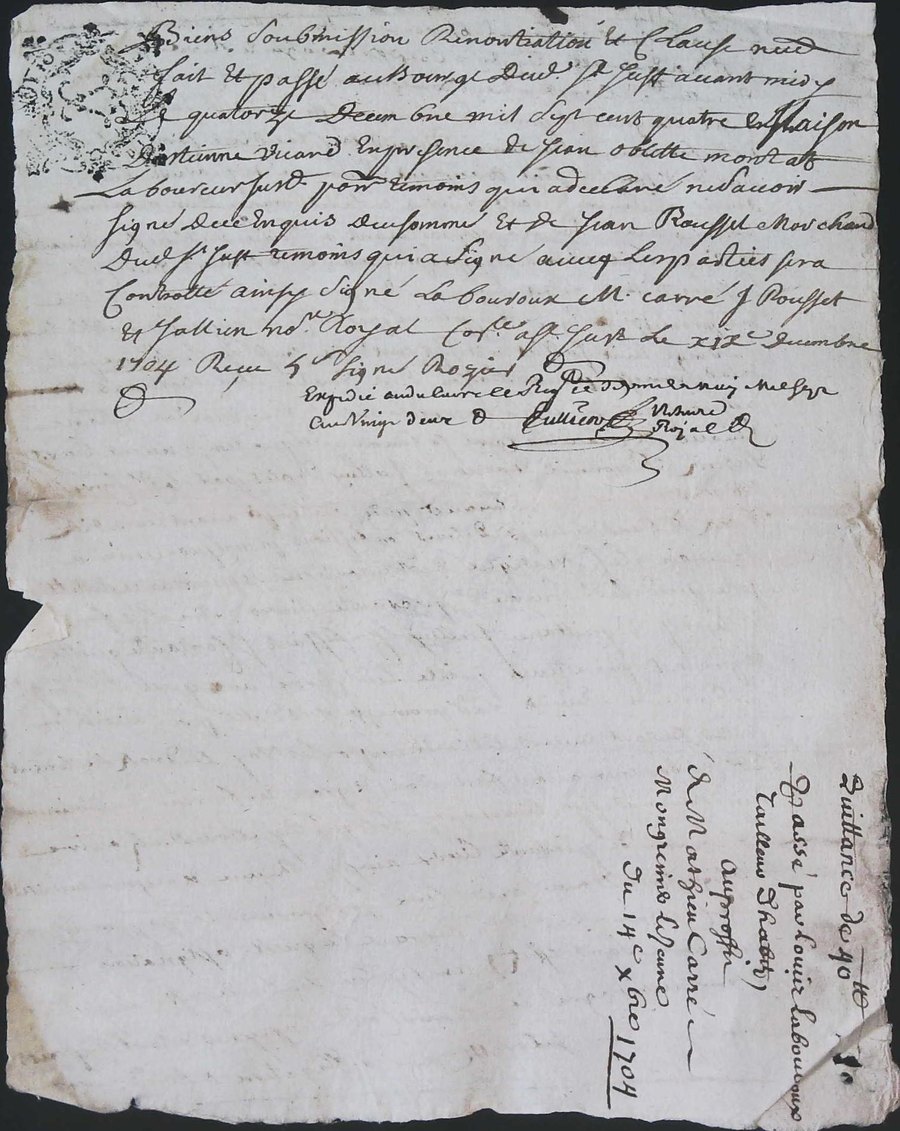 Biens Soubmission Renontiation et Clause neud
fait et passé au Bourge Dud. St Just avant midy
Le quatorze Decembre mil Sept cent quatre en maison
D'estienne vicard En presence de Jean montat
Laboureur temoins qui a declaré ne Scavoir
signé de ce Enquis Deusommé et de Jean Rousset Marchand
Dud. St Just temoins qui a Signé avecq Les parties sera
Controllé ainsy Signé Labouroux M. Carré J Rousset
Et Jullien nore Royal St Just Le XIXe decembre
1704 Reçu Signé Rozier
Expedié
Jullien Nottaire
Royal
Quittance de 40tt
Passé par Louis Labouroux
Tailleur D'habits
Au proffit
de Mathieu Carré
Mongreine le Jeune
Du 14e xbre 1704